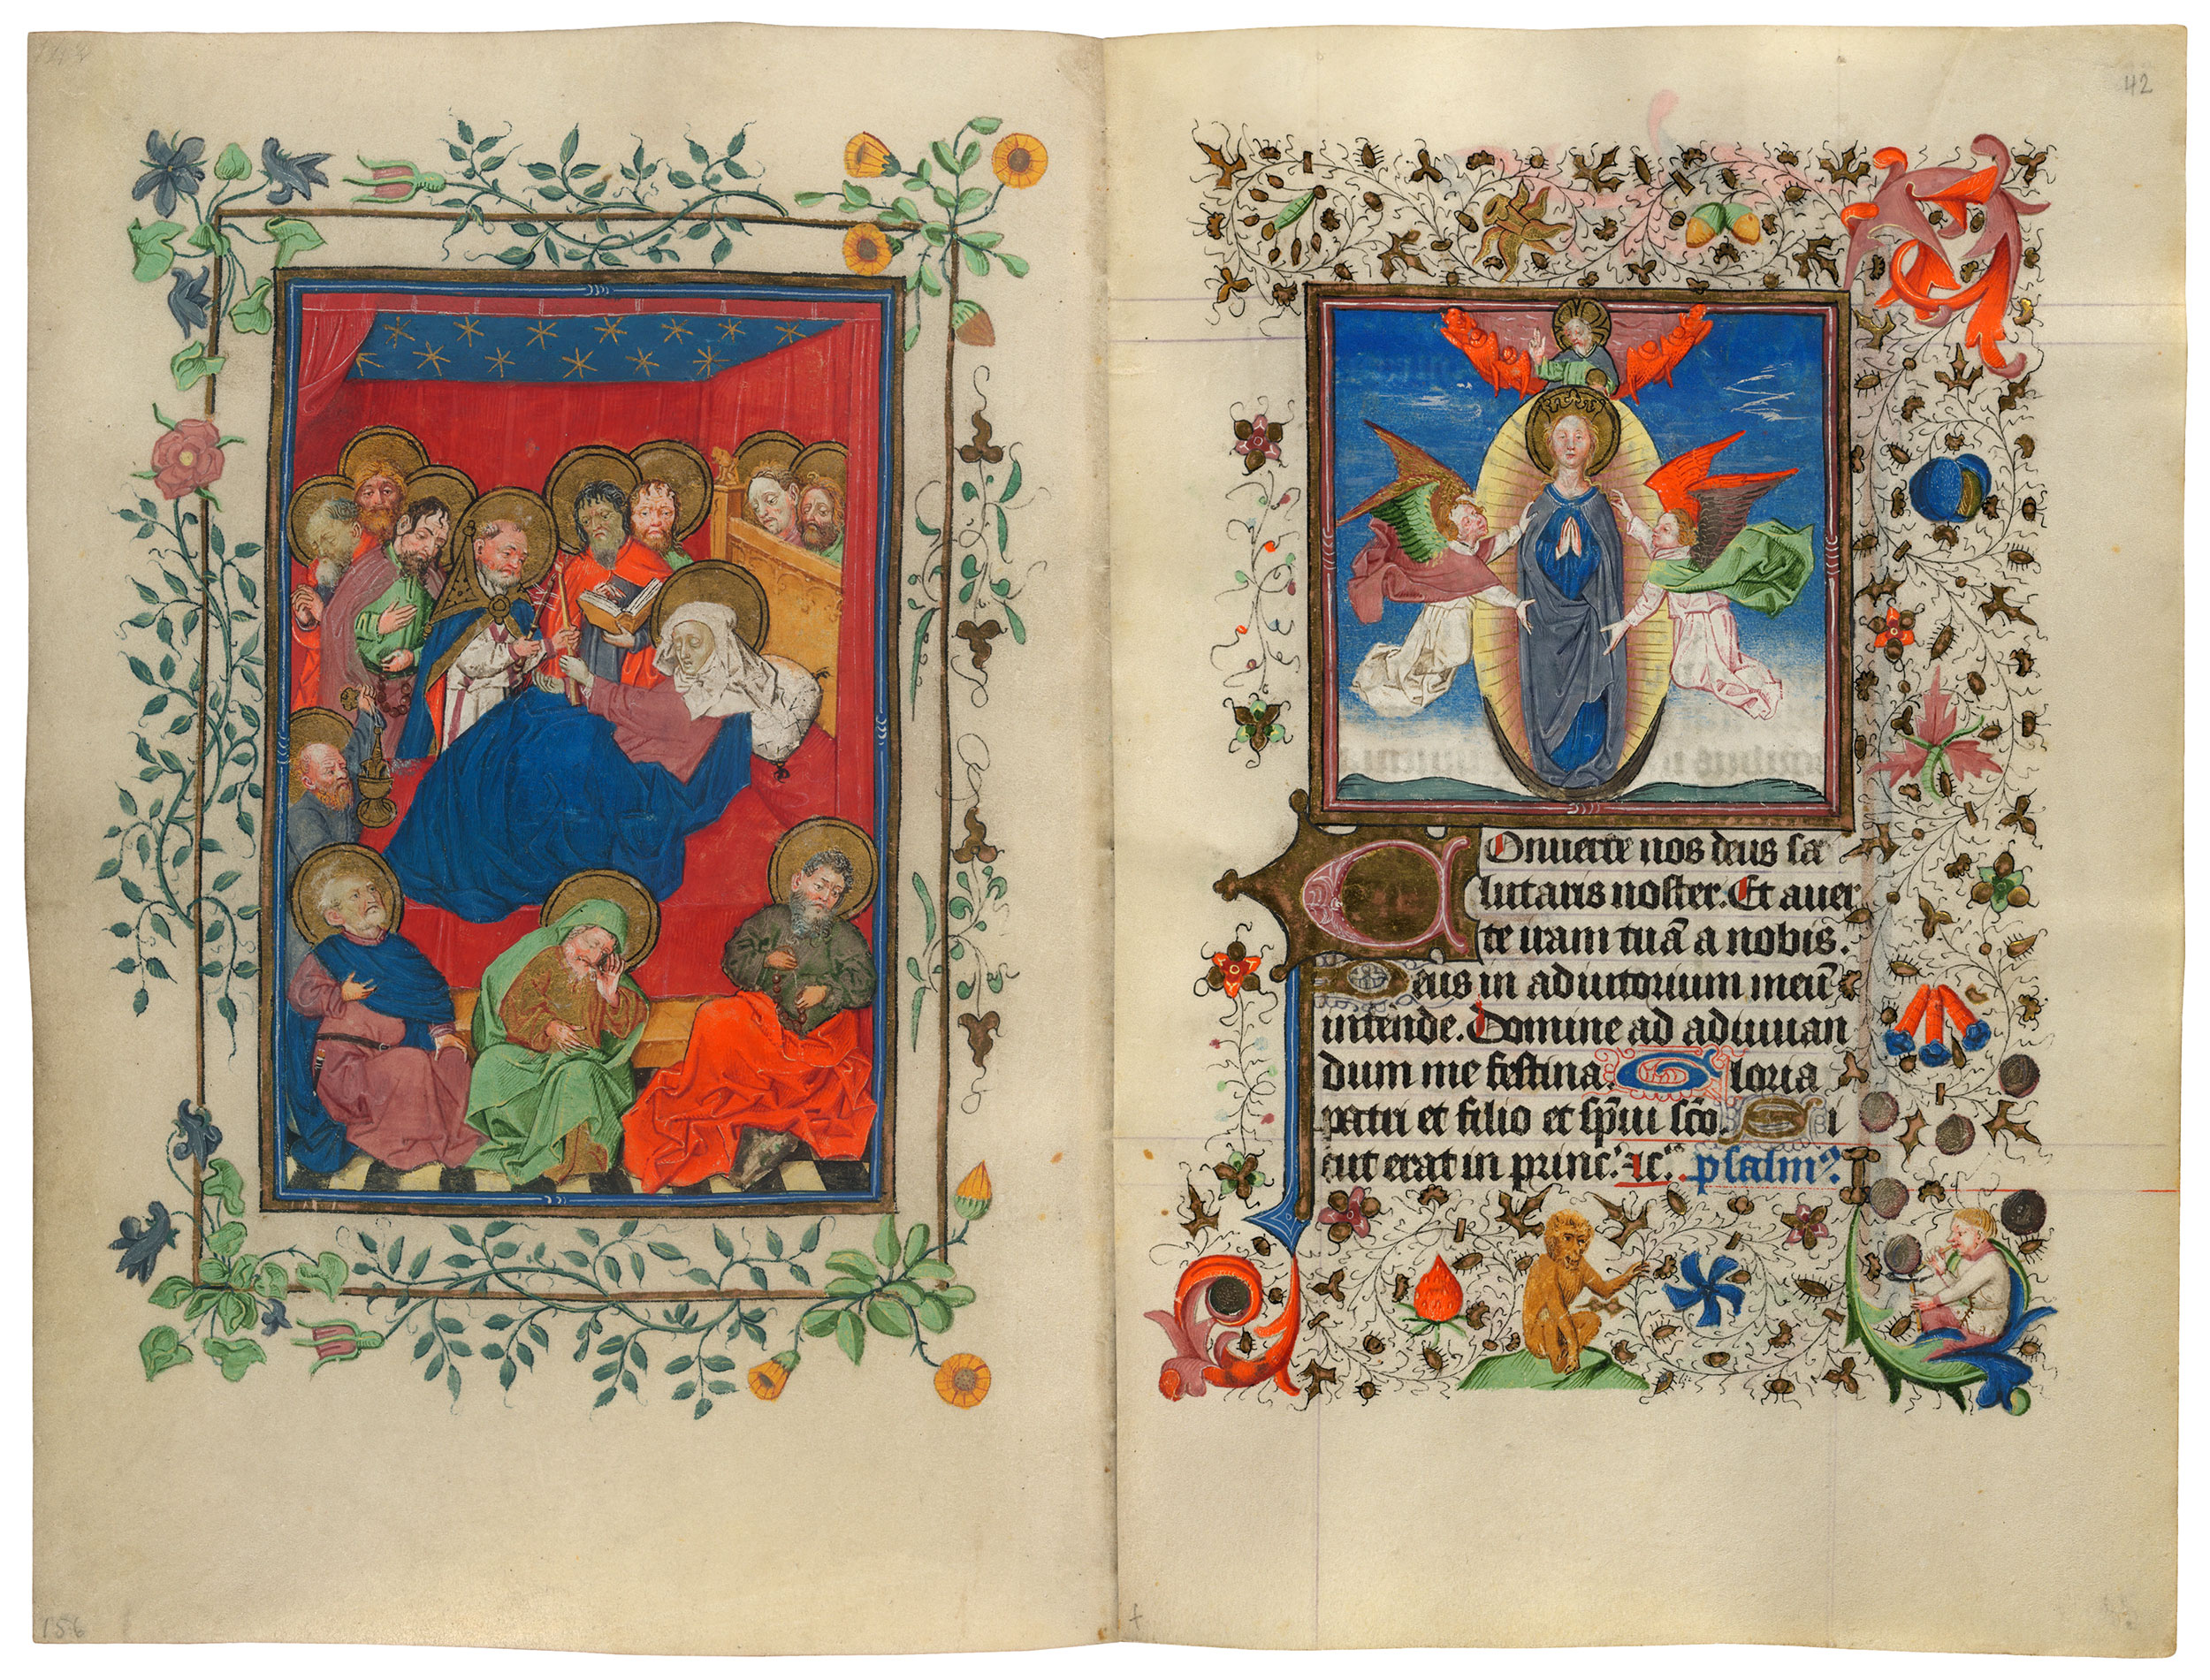 42
Conuerte nos deus sa
lutaris noster. Et auer
te iram tuā a nobis.
Deus in adiutorium meū
intende. Domine ad adiuuan
dum me festina. Gloria
patri et filio et spūi scō. Si
cut erat in princ. ⁊c. psalm?
156